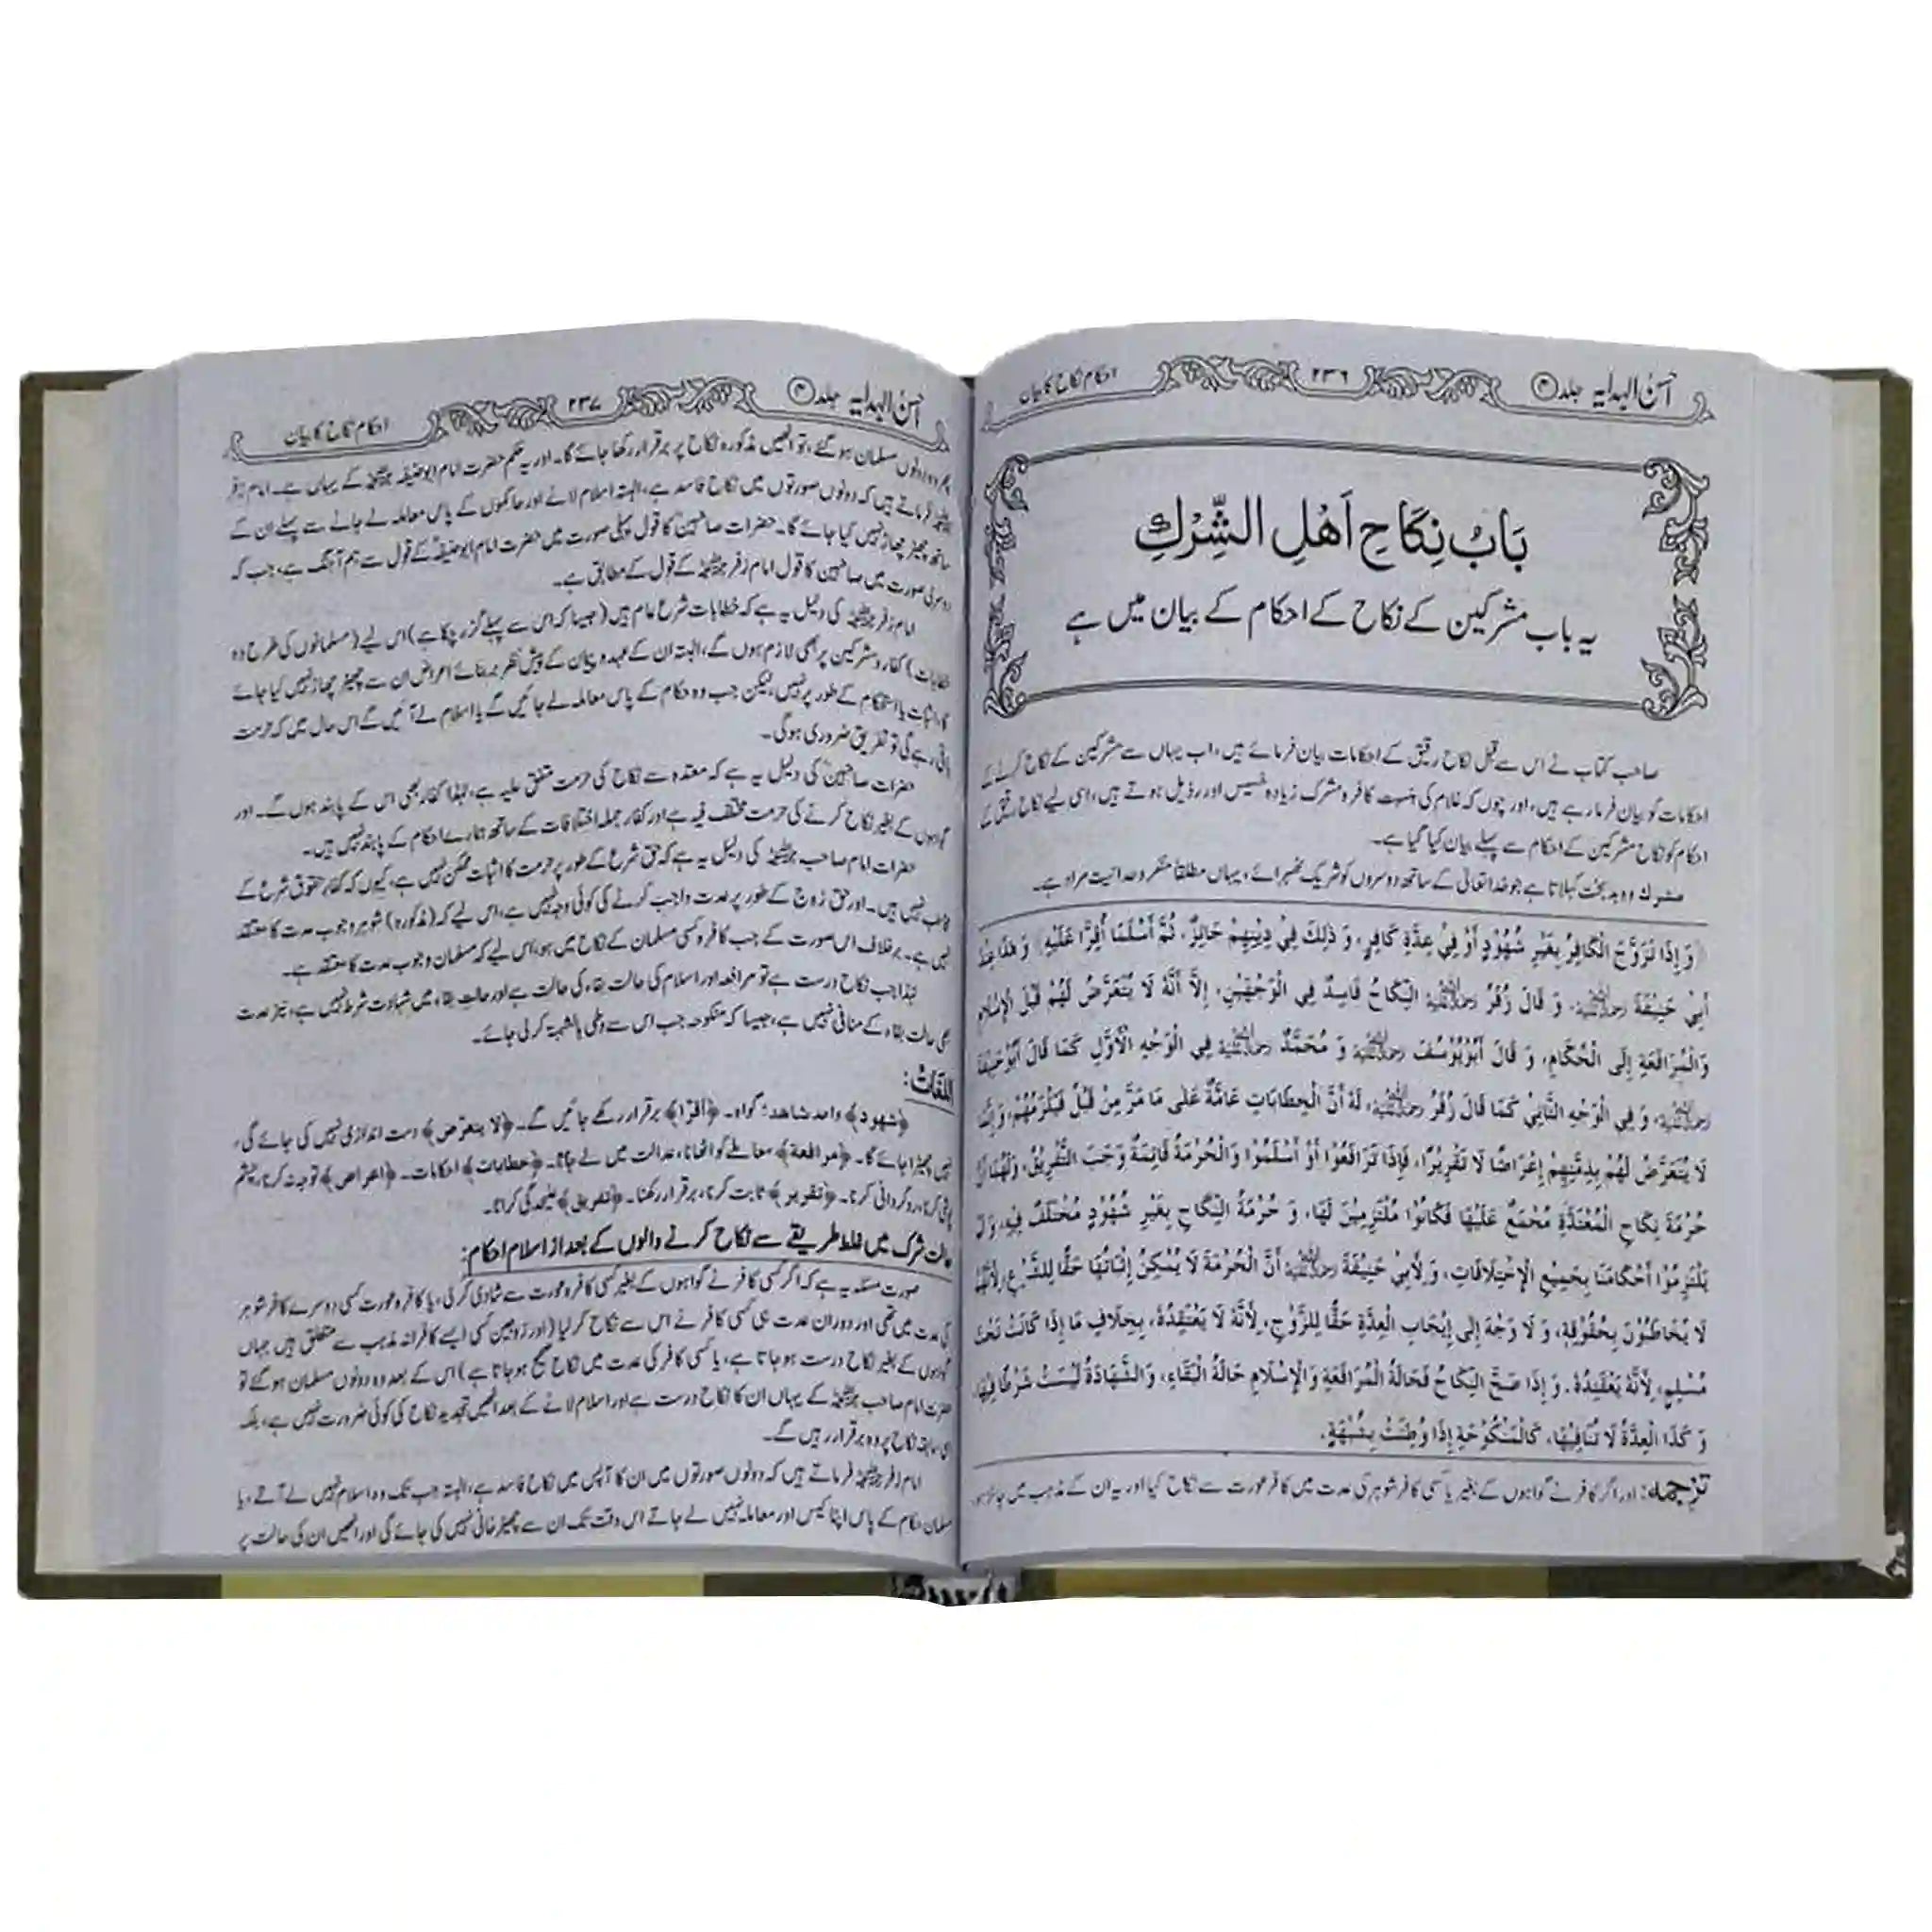 احسن الہدایہ جلد ۴ ۲۳۶ احکام نکاح کا بیان
بَابُ نِكَاحِ اَهْلِ الشِّرْكِ
یہ باب مشرکین کے نکاح کے احکام کے بیان میں ہے
صاحب کتاب نے اس سے قبل نکاح رقیق کے احکامات بیان فرمائے ہیں، اب یہاں سے مشرکین کے نکاح کرنے کے
احکامات کو بیان فرما رہے ہیں، اور چوں کہ غلام کی بنسبت کافر و مشرک زیادہ خسیس اور رذیل ہوتے ہیں، اسی لیے نکاح رقیق کے
احکام کو نکاح مشرکین کے احکام سے پہلے بیان کیا گیا ہے۔
مشرک وہ بد بخت کہلاتا ہے جو خدا تعالیٰ کے ساتھ دوسروں کو شریک ٹھہرائے، یہاں مطلقا منکر وحدانیت مراد ہے۔
وَ إِذَا تَزَوَّجَ الْكَافِرُ بِغَيْرِ شُهُوْدٍ أَوْ فِيْ عِدَّةِ كَافِرٍ، وَ ذٰلِكَ فِيْ دِيْنِهِمْ جَائِزٌ، ثُمَّ أَسْلَمَا أُقِرَّا عَلَيْهِ، وَ هٰذَا عِنْدَ
أَبِيْ حَنِيْفَةَ رحمۃ اللہ علیہ، وَ قَالَ زُفَرُ رحمۃ اللہ علیہ النِّكَاحُ فَاسِدٌ فِي الْوَجْهَيْنِ، إِلَّا أَنَّهُ لَا يُتَعَرَّضُ لَهُمْ قَبْلَ الْإِسْلَامِ
وَالْمُرَافَعَةِ إِلَى الْحُكَّامِ، وَ قَالَ أَبُوْيُوْسُفَ رحمۃ اللہ علیہ وَ مُحَمَّدٌ رحمۃ اللہ علیہ فِي الْوَجْهِ الْأَوَّلِ كَمَا قَالَ أَبُوْحَنِيْفَةَ
رحمۃ اللہ علیہ، وَ فِي الْوَجْهِ الثَّانِيْ كَمَا قَالَ زُفَرُ رحمۃ اللہ علیہ، لَهُ أَنَّ الْخِطَابَاتِ عَامَّةٌ عَلٰى مَا مَرَّ مِنْ قَبْلُ فَيَلْزَمُهُمْ، وَإِنَّمَا
لَا يُتَعَرَّضُ لَهُمْ بِذِمَّتِهِمْ إِعْرَاضًا لَا تَقْرِيْرًا، فَإِذَا تَرَافَعُوْا أَوْ أَسْلَمُوْا وَالْحُرْمَةُ قَائِمَةٌ وَجَبَ التَّفْرِيْقُ، وَلَهُمَا أَنَّ
حُرْمَةَ نِكَاحِ الْمُعْتَدَّةِ مُجْمَعٌ عَلَيْهَا فَكَانُوْا مُلْتَزِمِيْنَ لَهَا، وَ حُرْمَةُ النِّكَاحِ بِغَيْرِ شُهُوْدٍ مُخْتَلَفٌ فِيْهِ، وَ لَمْ
يَلْتَزِمُوْا أَحْكَامَنَا بِجَمِيْعِ الْإِخْتِلَافَاتِ، وَلِأَبِيْ حَنِيْفَةَ رحمۃ اللہ علیہ أَنَّ الْحُرْمَةَ لَا يُمْكِنُ إِثْبَاتُهَا حَقًّا لِلشَّرْعِ لِأَنَّهُمْ
لَا يُخَاطَبُوْنَ بِحُقُوْقِهِ، وَ لَا وَجْهَ إِلٰى إِيْجَابِ الْعِدَّةِ حَقًّا لِلزَّوْجِ، لِأَنَّهُ لَا يَعْتَقِدُهُ، بِخِلَافِ مَا إِذَا كَانَتْ تَحْتَ
مُسْلِمٍ، لِأَنَّهُ يَعْتَقِدُهُ، وَ إِذَا صَحَّ النِّكَاحُ فَحَالَةُ الْمُرَافَعَةِ وَالْإِسْلَامِ حَالَةُ الْبَقَاءِ، وَالشَّهَادَةُ لَيْسَتْ شَرْطًا فِيْهَا،
وَ كَذَا الْعِدَّةُ لَا تُنَافِيْهَا، كَالْمَنْكُوْحَةِ إِذَا وُطِئَتْ بِشُبْهَةٍ.
ترجمہ: اور اگر کافر نے گواہوں کے بغیر یا کسی کافر شوہر کی عدت میں کافر عورت سے نکاح کیا اور یہ ان کے مذہب میں جائز ہو،
احسن الہدایہ جلد ۴ ۲۳۷ احکام نکاح کا بیان
پھر وہ دونوں مسلمان ہو گئے، تو انھیں مذکورہ نکاح پر برقرار رکھا جائے گا۔ اور یہ حکم حضرت امام ابو حنیفہ رحمۃ اللہ علیہ کے یہاں ہے۔ امام زفر
رحمۃ اللہ علیہ فرماتے ہیں کہ دونوں صورتوں میں نکاح فاسد ہے، البتہ اسلام لانے اور حاکموں کے پاس معاملہ لے جانے سے پہلے ان کے
ساتھ چھیڑ چھاڑ نہیں کیا جائے گا۔ حضرات صاحبینؒ کا قول پہلی صورت میں حضرت امام ابو حنیفہؒ کے قول سے ہم آہنگ ہے، جب کہ
دوسری صورت میں صاحبین کا قول امام زفر رحمۃ اللہ علیہ کے قول کے مطابق ہے۔
امام زفر رحمۃ اللہ علیہ کی دلیل یہ ہے کہ خطابات شرع عام ہیں (جیسا کہ اس سے پہلے گزر چکا ہے) اس لیے (مسلمانوں کی طرح وہ
خطابات) کفار و مشرکین پر بھی لازم ہوں گے، البتہ ان کے عہد و پیمان کے پیش نظر بربنائے اعراض ان سے چھیڑ چھاڑ نہیں کیا جائے
گا، اثبات یا استحکام کے طور پر نہیں، لیکن جب وہ حکام کے پاس معاملہ لے جائیں گے یا اسلام لے آئیں گے اس حال میں کہ حرمت
باقی رہے گی تو تفریق ضروری ہوگی۔
حضرات صاحبینؒ کی دلیل یہ ہے کہ معتدہ سے نکاح کی حرمت متفق علیہ ہے، لہٰذا کفار بھی اس کے پابند ہوں گے۔ اور
گواہوں کے بغیر نکاح کرنے کی حرمت مختلف فیہ ہے اور کفار جملہ اختلافات کے ساتھ ہمارے احکام کے پابند نہیں ہیں۔
حضرات امام صاحب رحمۃ اللہ علیہ کی دلیل یہ ہے کہ حق شرع کے طور پر حرمت کا اثبات ممکن نہیں ہے، کیوں کہ کفار حقوق شرع کے
مخاطب نہیں ہیں۔ اور حق زوج کے طور پر عدت واجب کرنے کی کوئی وجہ نہیں ہے، اس لیے کہ (مذکورہ) شوہر وجوب عدت کا معتقد
نہیں ہے۔ برخلاف اس صورت کے جب کافرہ کسی مسلمان کے نکاح میں ہو، اس لیے کہ مسلمان وجوب عدت کا معتقد ہے۔
لہٰذا جب نکاح درست ہے تو مرافعہ اور اسلام کی حالت بقاء کی حالت ہے اور حالت بقاء میں شہادت شرط نہیں ہے، نیز عدت
بھی حالت بقاء کے منافی نہیں ہے، جیسا کہ منکوحہ جب اس سے وطی بالشبہۃ کر لی جائے۔
اللغَات:
﴿شهود﴾ واحد شاهد؛ گواہ۔ ﴿اقرّا﴾ برقرار رکھے جائیں گے۔ ﴿لا يتعرّض﴾ دست اندازی نہیں کی جائے گی،
نہیں چھیڑا جائے گا۔ ﴿مرافعة﴾ معاملے کو اٹھانا، عدالت میں لے جانا۔ ﴿خطابات﴾ احکامات۔ ﴿اعراض﴾ توجہ نہ کرنا، چشم
پوشی کرنا، روگردانی کرنا۔ ﴿تقرير﴾ ثابت کرنا، برقرار رکھنا۔ ﴿تفريق﴾ علیحدگی کرانا۔
حالت شرک میں غلط طریقے سے نکاح کرنے والوں کے بعد از اسلام احکام:
صورت مسئلہ یہ ہے کہ اگر کسی کافر نے گواہوں کے بغیر کسی کافرہ عورت سے شادی کر لی، یا کافرہ عورت کسی دوسرے کافر شوہر
کی عدت میں تھی اور دوران عدت ہی کسی کافر نے اس سے نکاح کر لیا (اور زوجین کسی ایسے کافرانہ مذہب سے متعلق ہیں جہاں
گواہوں کے بغیر نکاح درست ہو جاتا ہے، یا کسی کافر کی عدت میں نکاح صحیح ہو جاتا ہے) اس کے بعد وہ دونوں مسلمان ہو گئے تو
حضرت امام صاحب رحمۃ اللہ علیہ کے یہاں ان کا نکاح درست ہے اور اسلام لانے کے بعد انھیں تجدید نکاح کی کوئی ضرورت نہیں ہے، بلکہ
اسی سابقہ نکاح پر وہ برقرار رہیں گے۔
امام زفر رحمۃ اللہ علیہ فرماتے ہیں کہ دونوں صورتوں میں ان کا آپس میں نکاح فاسد ہے، البتہ جب تک وہ اسلام نہیں لے آتے، یا
مسلمان حکام کے پاس اپنا کیس اور معاملہ نہیں لے جاتے اس وقت تک ان سے چھیڑ خانی نہیں کی جائے گی اور انھیں ان کی حالت پر